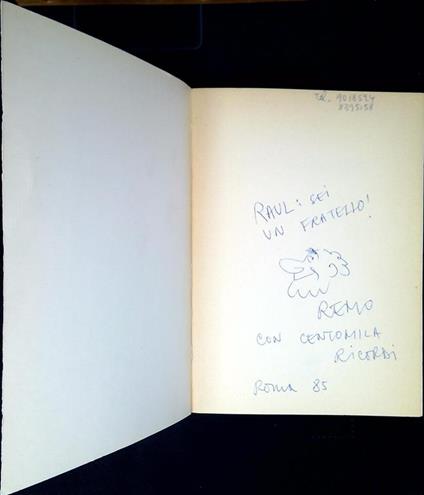 Tel. 9018524
8395158
RAUL: SEI
UN FRATELLO!
REMO
CON CENTOMILA
RICORDI
ROMA 85